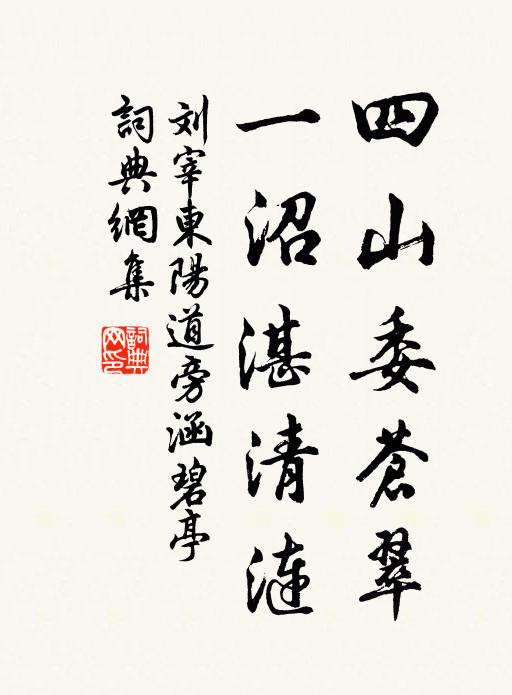 四山委蒼翠
一沼湛清漣
刘宰東陽道旁涵碧亭
詞典網集
詞典网印